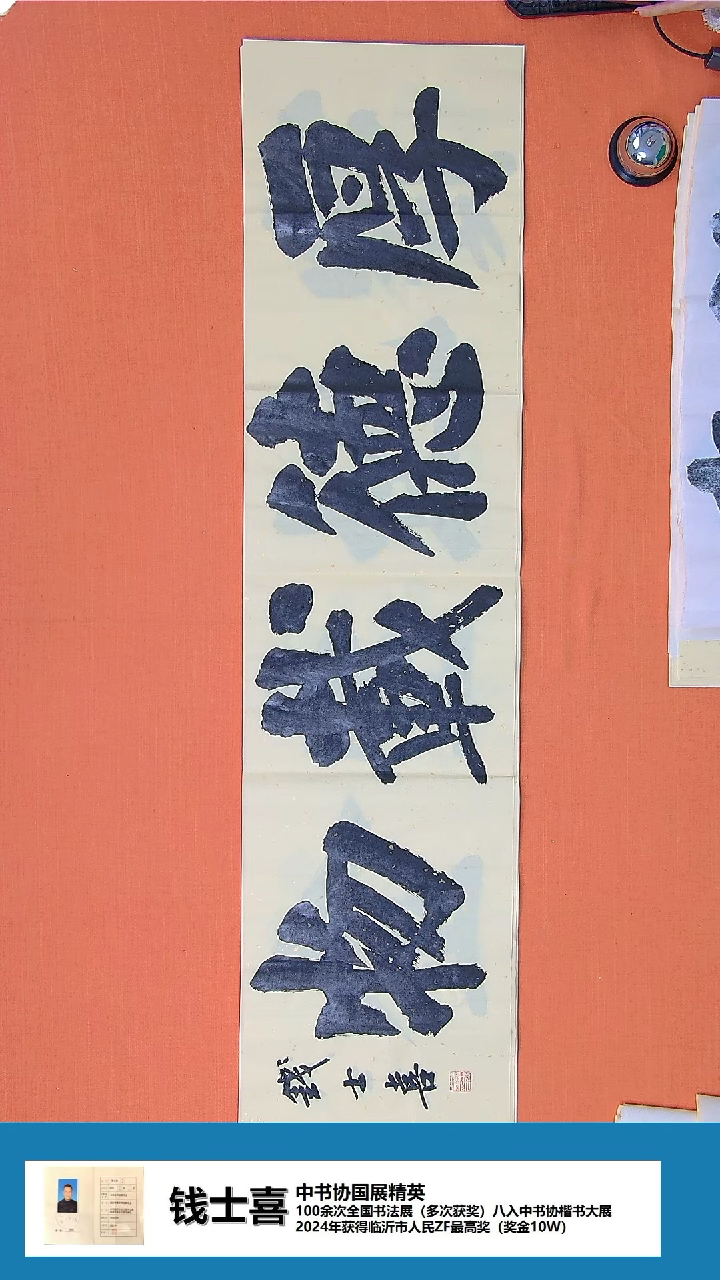 厚德載物
錢士喜
钱士喜
中书协国展精英
100余次全国书法展（多次获奖）八入中书协楷书大展
2024年获得临沂市人民ZF最高奖（奖金10W）